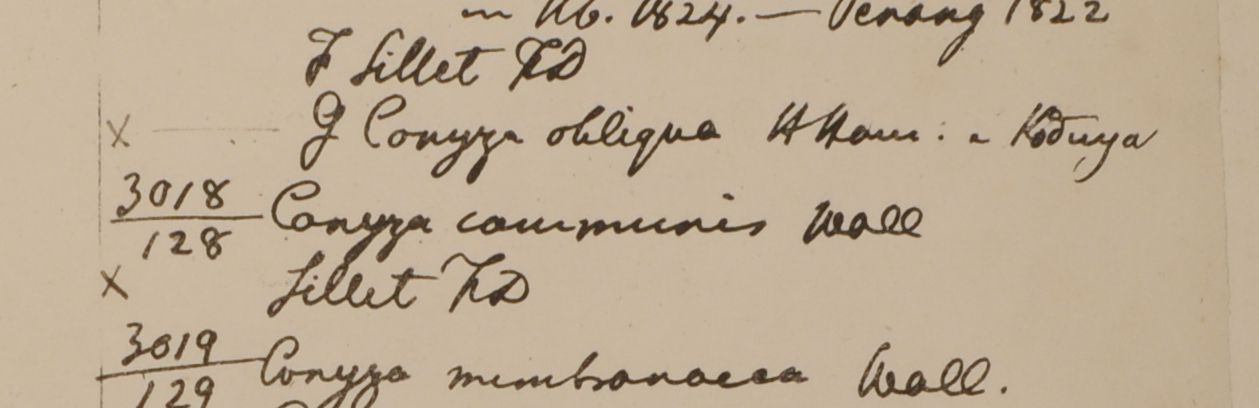 1824. — Penang 1822
F Sillet FD
X G Conyza obliqua HHam: a Koduya
3018 Conyza communis Wall
128
X Sillet FD
3019 Conyza membranacea Wall.
129